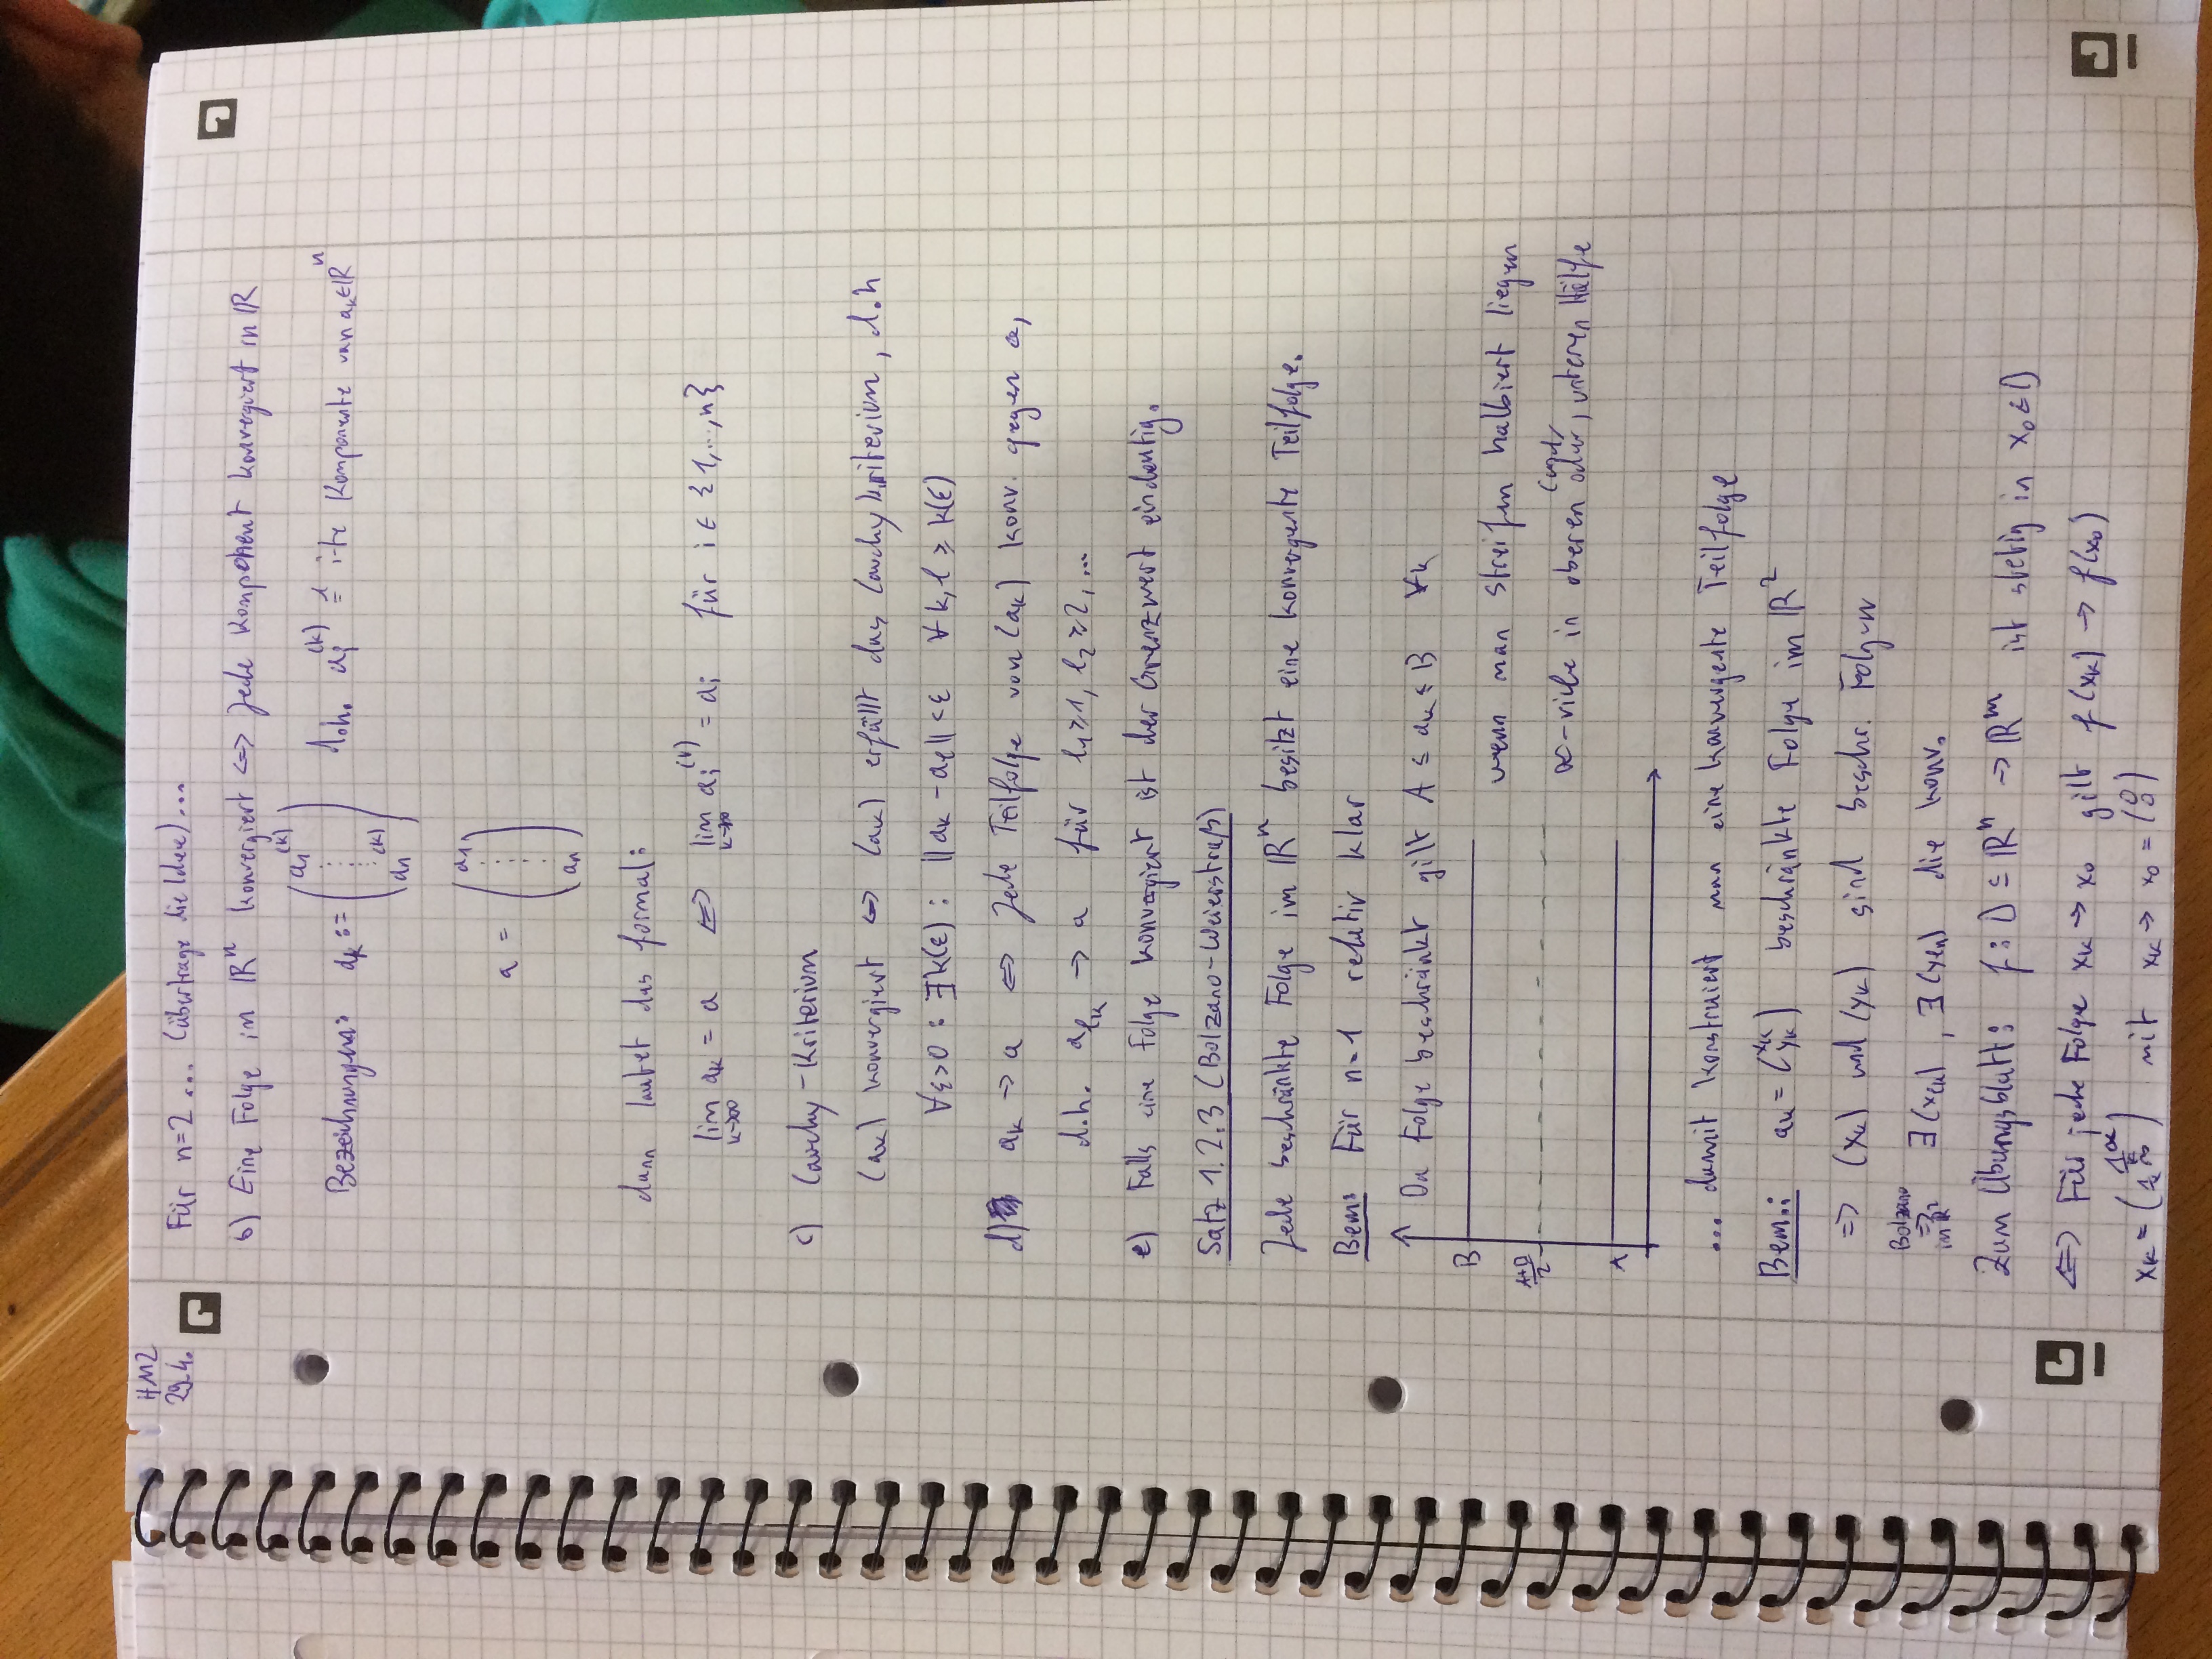 HM2
29.4.
Für n=2 ... (übertrage die Idee) ...
b) Eine Folge im ℝⁿ konvergiert <=> Jede Komponent konvergiert in ℝ
Bezeichnungen: aₖ := (a₁⁽ᵏ⁾ ⋮ aₙ⁽ᵏ⁾) d.h. aᵢ⁽ᵏ⁾ ≙ i-te Komponente von aₖ∈ℝⁿ
a = (a₁ ⋮ aₙ)
dann lautet das formal:
lim k→∞ aₖ = a <=> lim k→∞ aᵢ⁽ᵏ⁾ = aᵢ für i ∈ {1,...,n}
c) Cauchy-Kriterium
(aₖ) konvergiert <=> (aₖ) erfüllt das Cauchykriterium, d.h
∀ε>0 : ∃k(ε) : ||aₖ - aₗ|| < ε ∀ k,l ≥ k(ε)
d) aₖ → a <=> Jede Teilfolge von (aₖ) konv. gegen a,
d.h. a_{lₖ} → a für l₁≥1, l₂≥2, ...
e) Falls eine Folge konvergiert ist der Grenzwert eindeutig.
Satz 1.2.3 (Bolzano-Weierstraß)
Jede beschränkte Folge im ℝⁿ besitzt eine konvergente Teilfolge.
Bem: Für n=1 relativ klar
Da Folge beschränkt gilt A ≤ aₖ ≤ B ∀k
B
wenn man Streifen halbiert liegen
A+B/2
∞-viele in oberen (und) oder, unteren Hälfe
A
... damit konstruiert man eine konvergente Teilfolge
Bem.: aₖ = (xₖ yₖ) beschränkte Folge im ℝ²
=> (xₖ) und (yₖ) sind beschr. Folgen
Bolzano
=> ∃(x_{lₖ}), ∃(y_{lₖ}) die konv.
Zum Übungsblatt: f : D ⊆ ℝⁿ → ℝᵐ ist stetig in x₀∈D
<=> Für jede Folge xₖ → x₀ gilt f(xₖ) → f(x₀)
mit xₖ → x₀ = (0 0)